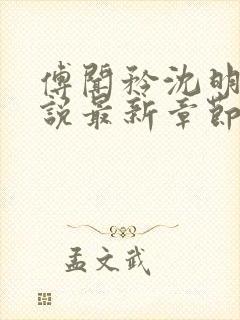 傅闻矜沈明
說最新章節
孟文武